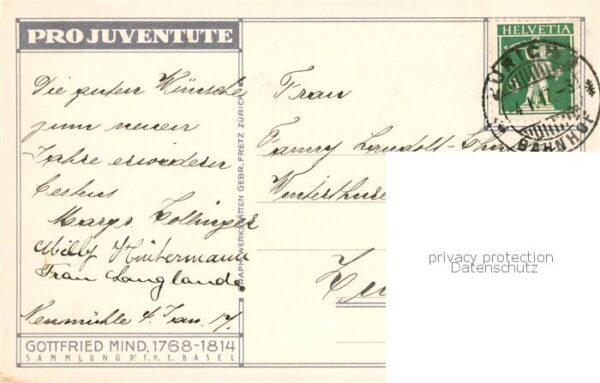 PRO JUVENTUTE
Die guten Wünsche
zum neuen
Jahre erwiedern
bestens
Margr. Zollinger
Milly Hintermann
Frau Langlande
Neumühle 4. Jan. 17.
GOTTFRIED MIND, 1768-1814
SAMMLUNG DR. TH. E. BASEL
GRAPH. WERKSTÄTTEN GEBR. FRETZ ZÜRICH
HELVETIA
ZÜRICH
BAHNHOF
Frau
Fanny Landolt-
Winterthurer
privacy protection
Datenschutz